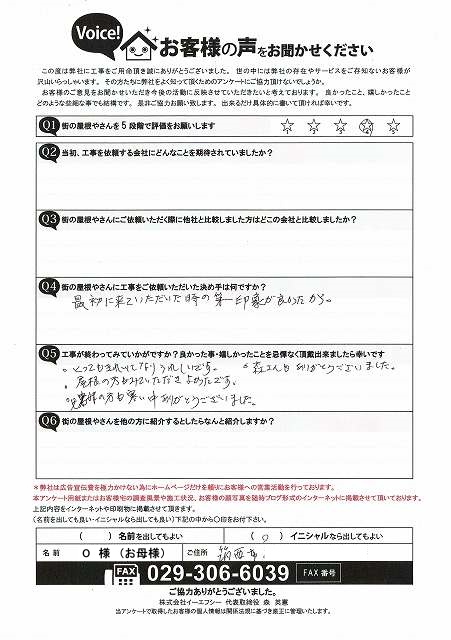 Voice!
お客様の声をお聞かせください
この度は弊社に工事をご用命頂き誠にありがとうございました。 世の中には弊社の存在やサービスをご存知ないお客様が
沢山いらっしゃいます。 その方たちに弊社をよく知って頂くためのアンケートにご協力頂けないでしょうか。
お客様のご意見をお聞かせいただき今後の活動に反映させていただきたいと考えております。 良かったこと、嬉しかったこと
どのような些細な事でも結構です。 是非ご協力お願い致します。 出来るだけ具体的に書いて頂ければ幸いです。
Q1 街の屋根やさんを5段階で評価をお願いします
1 2 3 4 5
Q2 当初、工事を依頼する会社にどんなことを期待されていましたか？
Q3 街の屋根やさんにご依頼いただく際に他社と比較しました方はどこの会社と比較しましたか？
Q4 街の屋根やさんに工事をご依頼いただいた決め手は何ですか？
最初に来ていただいた時の第一印象が良かったから。
Q5 工事が終わってみていかがですか？良かった事・嬉しかったことを忌憚なく頂戴出来ましたら幸いです
。とってもきれいになりうれしいです。 。森さんもありがとうございました。
。屋根の方もみていただきよかったです。
の方も寒い中ありがとうございました。
Q6 街の屋根やさんを他の方に紹介するとしたらなんと紹介しますか？
＊弊社は広告宣伝費を極力かけない為にホームページだけを頼りにお客様への営業活動を行っております。
本アンケート用紙またはお客様宅の調査風景や施工状況、お客様の顔写真を随時ブログ形式のインターネットに掲載させて頂いております。
上記内容をインターネットや印刷物に掲載させて頂きます。
（名前を出しても良い・イニシャルなら出しても良い）下記の中から〇印をお付下さい。
（ ）名前を出してもよい （○）イニシャルなら出してもよい
名前 O 様（お母様） ご住所 筑西市
FAX 029-306-6039 FAX番号
ご協力ありがとうございました。
株式会社イーエフシー 代表取締役 森 英憲
当アンケートで取得したお客様の個人情報は関係法規に基づき厳正に管理いたします。